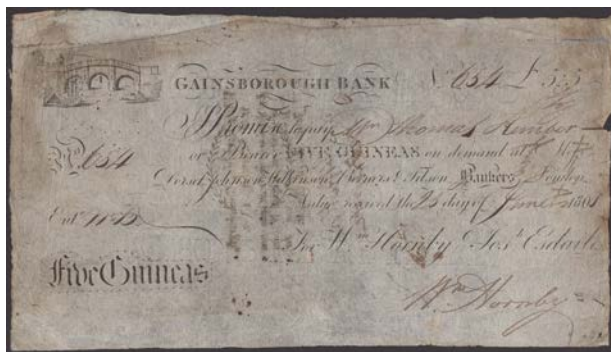 GAINSBOROUGH BANK No 654 £ 5:5
I Promise to pay Mr Thomas
No 654 or Bearer FIVE GUINEAS on demand at
Dorset, Johnson, Wilkinson, Berners & Tilson, Bankers, London
Value received the 23 day of June 1801
Entd
For Wm Hornby & Josh Esdaile
Five Guineas
Wm Hornby